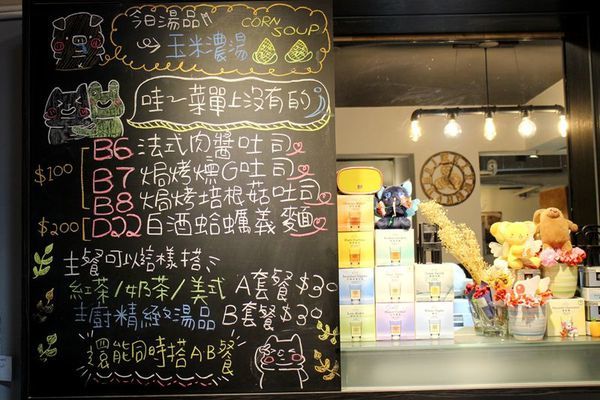 今日湯品
CORN SOUP
玉米濃湯
哇~菜單上沒有的
$100
B6法式肉醬吐司
B7焗烤燻G吐司
B8焗烤培根菇吐司
$200
D22白酒蛤蠣義麵
主餐可以這樣搭
紅茶/奶茶/美式 A套餐 $30
主廚精緻湯品 B套餐 $30
還能同時搭AB餐